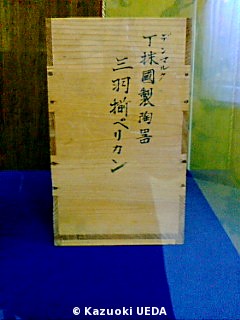 デンマルク
丁抹國製陶器
三羽揃ペリカン
© Kazuoki UEDA